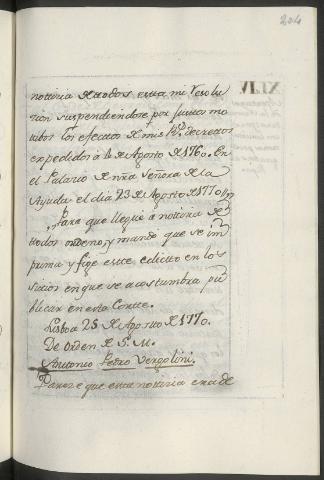 204
noticia de todos esta mi resolu
cion suspendiendose por justos mo
tibos los efectos de mis Rs. decretos
expedidos à 4 de Agosto de 1760. En
el Palacio de nra Señora de la
Ayuda el dia 23 de Agosto de 1770
Para que llegue à noticia de
todos ordeno, y mando que se im
prima y fige este edicto en los
sitios en que se acostumbra pu
blicar en esta Corte.
Lisboa 25 de Agosto de 1770.
De Orden de S. M.
Antonio Pedro Vergolini.
Parece que esta noticia era de